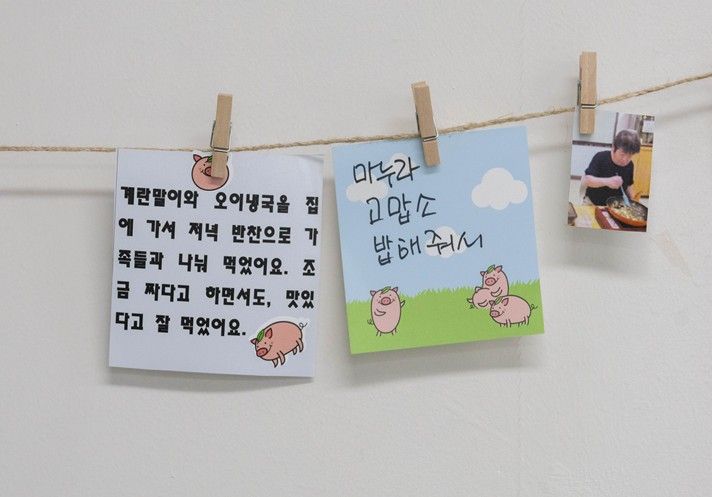 계란말이와 오이냉국을 집
에 가서 저녁 반찬으로 가
족들과 나눠 먹었어요. 조
금 짜다고 하면서도, 맛있
다고 잘 먹었어요.
마누라
고맙소
밥해줘서